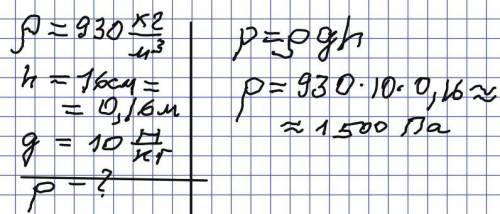 ρ = 930 кг/м³
h = 16см =
= 0,16м
g = 10 Н/кг
p - ?
p = ρgh
p = 930·10·0,16 ≈
≈ 1500 Па